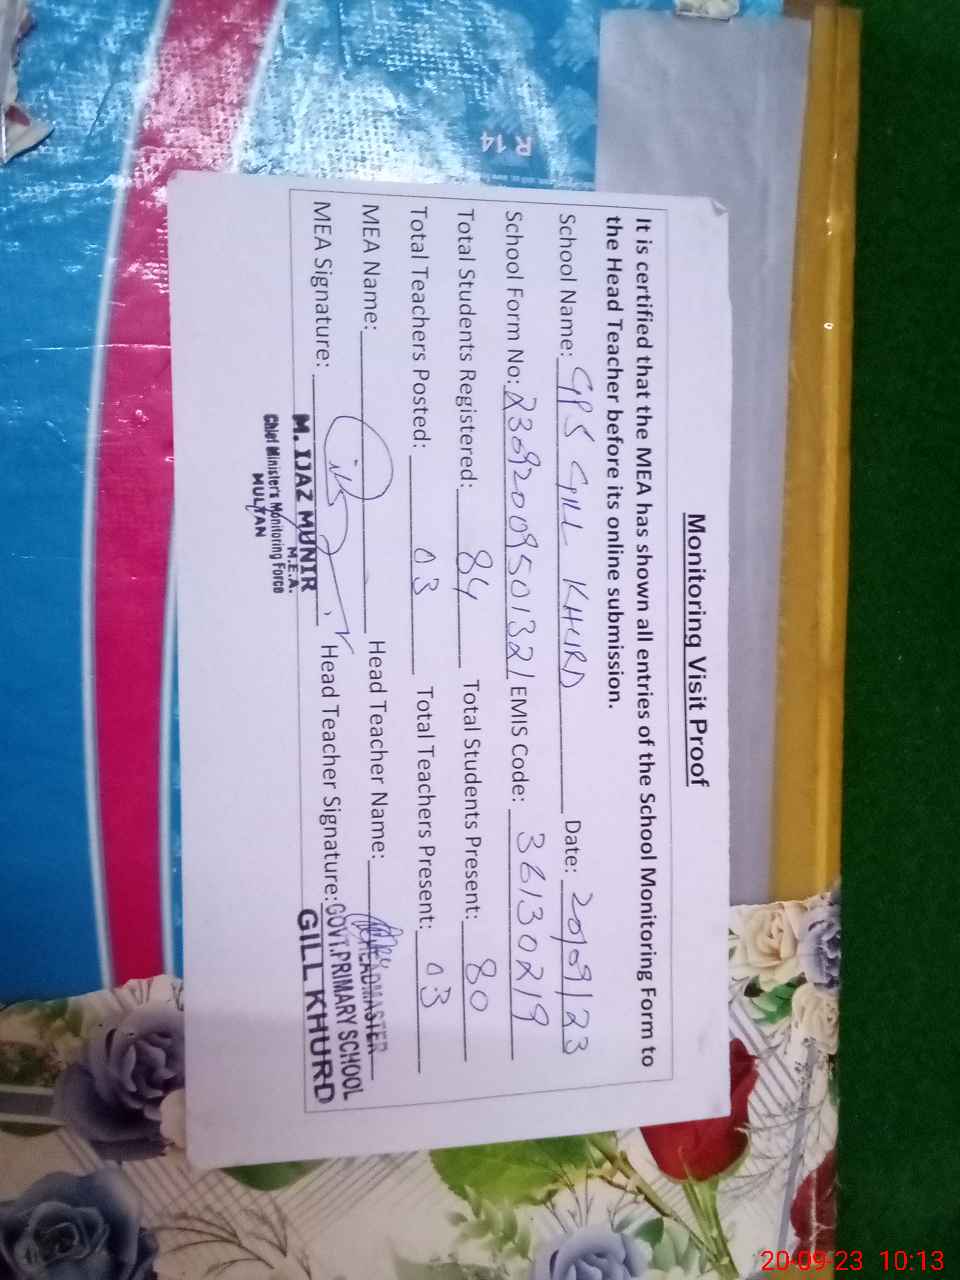 Monitoring Visit Proof
It is certified that the MEA has shown all entries of the School Monitoring Form to
the Head Teacher before its online submission.
School Name: GPS GILL KHURD Date: 20/09/23
School Form No: 23092009501321 EMIS Code: 36130219
Total Students Registered: 84 Total Students Present: 80
Total Teachers Posted: 03 Total Teachers Present: 03
MEA Name: Head Teacher Name:
HEADMASTER
MEA Signature: Head Teacher Signature: GOVT. PRIMARY SCHOOL
GILL KHURD
M. IJAZ MUNIR
M.E.A.
Chief Minister's Monitoring Force
MULTAN
R 14
20-09-23 10:13